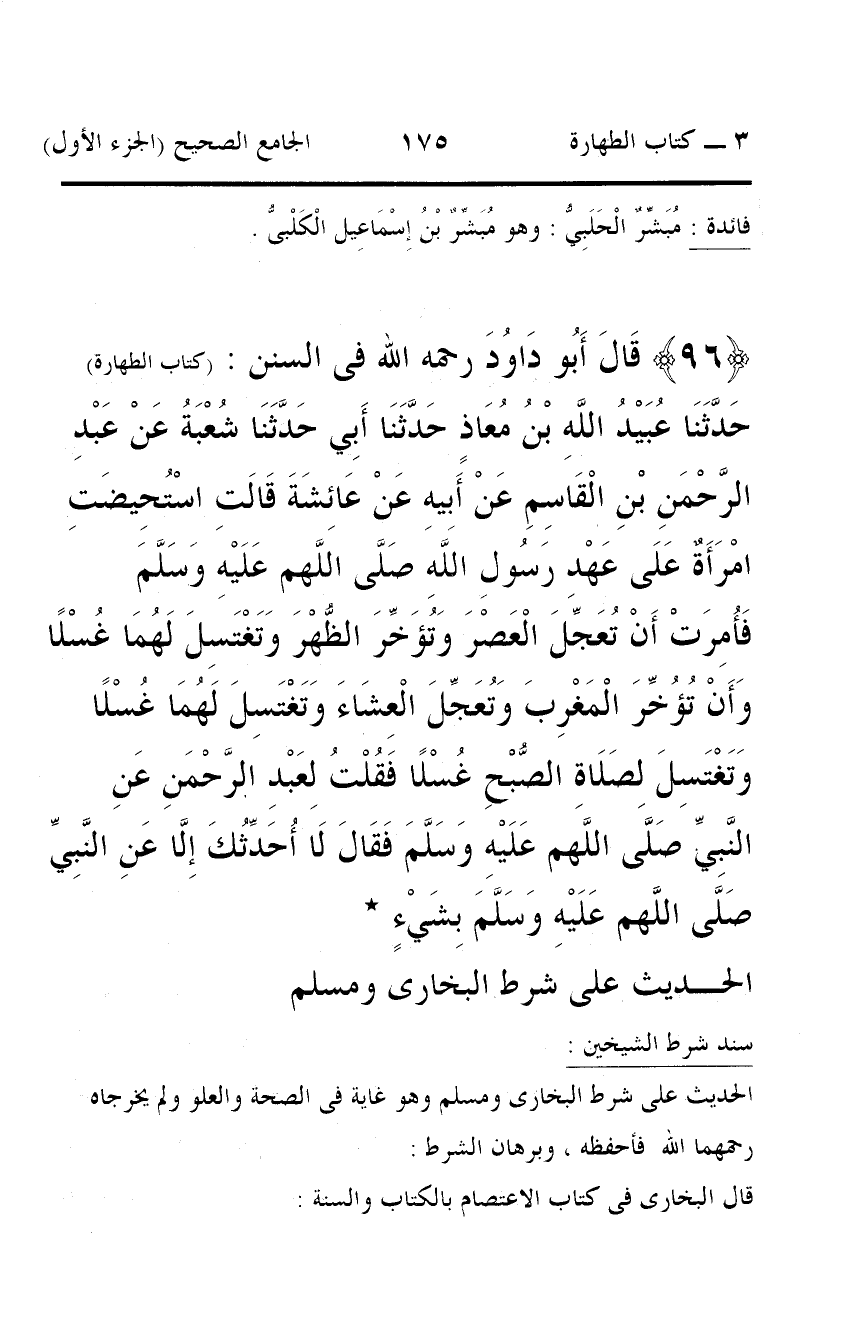 ٣ ــ كتاب الطهارة ١٧٥ الجامع الصحيح (الجزء الأول)
فائدة : مُبَشِّرٌ الْحَلَبِيُّ : وهو مُبَشِّرٌ بْنُ إِسْمَاعِيل الْكَلْبِىُّ .
﴿٩٦﴾ قَالَ أَبُو دَاوُدَ رحمه الله فى السنن : (كتاب الطهارة)
حَدَّثَنَا عُبَيْدُ اللَّهِ بْنُ مُعَاذٍ حَدَّثَنَا أَبِي حَدَّثَنَا شُعْبَةُ عَنْ عَبْدِ
الرَّحْمَنِ بْنِ الْقَاسِمِ عَنْ أَبِيهِ عَنْ عَائِشَةَ قَالَتِ اسْتُحِيضَتِ
امْرَأَةٌ عَلَى عَهْدِ رَسُولِ اللَّهِ صَلَّى اللَّهم عَلَيْهِ وَسَلَّمَ
فَأُمِرَتْ أَنْ تُعَجِّلَ الْعَصْرَ وَتُؤَخِّرَ الظُّهْرَ وَتَغْتَسِلَ لَهُمَا غُسْلًا
وَأَنْ تُؤَخِّرَ الْمَغْرِبَ وَتُعَجِّلَ الْعِشَاءَ وَتَغْتَسِلَ لَهُمَا غُسْلًا
وَتَغْتَسِلَ لِصَلَاةِ الصُّبْحِ غُسْلًا فَقُلْتُ لِعَبْدِ الرَّحْمَنِ عَنِ
النَّبِيِّ صَلَّى اللَّهم عَلَيْهِ وَسَلَّمَ فَقَالَ لَا أُحَدِّثُكَ إِلَّا عَنِ النَّبِيِّ
صَلَّى اللَّهم عَلَيْهِ وَسَلَّمَ بِشَيْءٍ *
الحـــديث على شرط البخارى ومسلم
سند شرط الشيخين :
الحديث على شرط البخارى ومسلم وهو غاية فى الصحة والعلو ولم يخرجاه
رحمهما الله فأحفظه ، وبرهان الشرط :
قال البخارى فى كتاب الاعتصام بالكتاب والسنة :